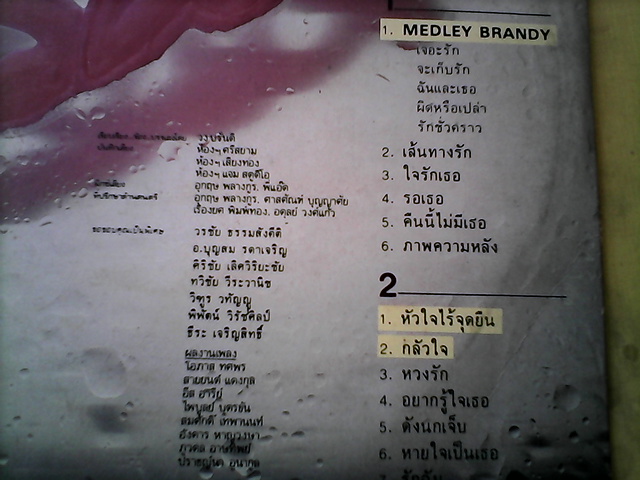 วงบรั่นดี
ห้องฯ ศรีสยาม
ห้องฯ เสียงทอง
ห้องฯ แจม สตูดิโอ
อุกฤษ พลางกูร. พีแอ๊ด
ที่ปรึกษาด้านดนตรี
อุกฤษ พลางกูร. ศาสตัณท์ บุญญาศัย
เรืองยศ พิมพ์ทอง. อดุลย์ วงศ์แก้ว
ขอขอบคุณเป็นพิเศษ
วรชัย ธรรมสังคีติ
อ.บุญสม รดาเจริญ
ศิริชัย เลิศวิริยะชัย
ทวิชัย วีระวานิช
วิฑูร วทัญญู
พิพัฒน์ วิรัชศิลป์
ธีระ เจริญสิทธิ์
ผลงานเพลง
โอภาส ทศพร
สายยนต์ แดงกุล
อิส อารีย์
ไพบูลย์ บุตรขัน
สมศักดิ์ เทพานนท์
1. MEDLEY BRANDY
เจอะรัก
จะเก็บรัก
ฉันและเธอ
ผิดหรือเปล่า
รักชั่วคราว
2. เส้นทางรัก
3. ใจรักเธอ
4. รอเธอ
5. คืนนี้ไม่มีเธอ
6. ภาพความหลัง
2
1. หัวใจไร้จุดยืน
2. กลัวใจ
3. หวงรัก
4. อยากรู้ใจเธอ
5. ดังนกเจ็บ
6. หายใจเป็นเธอ